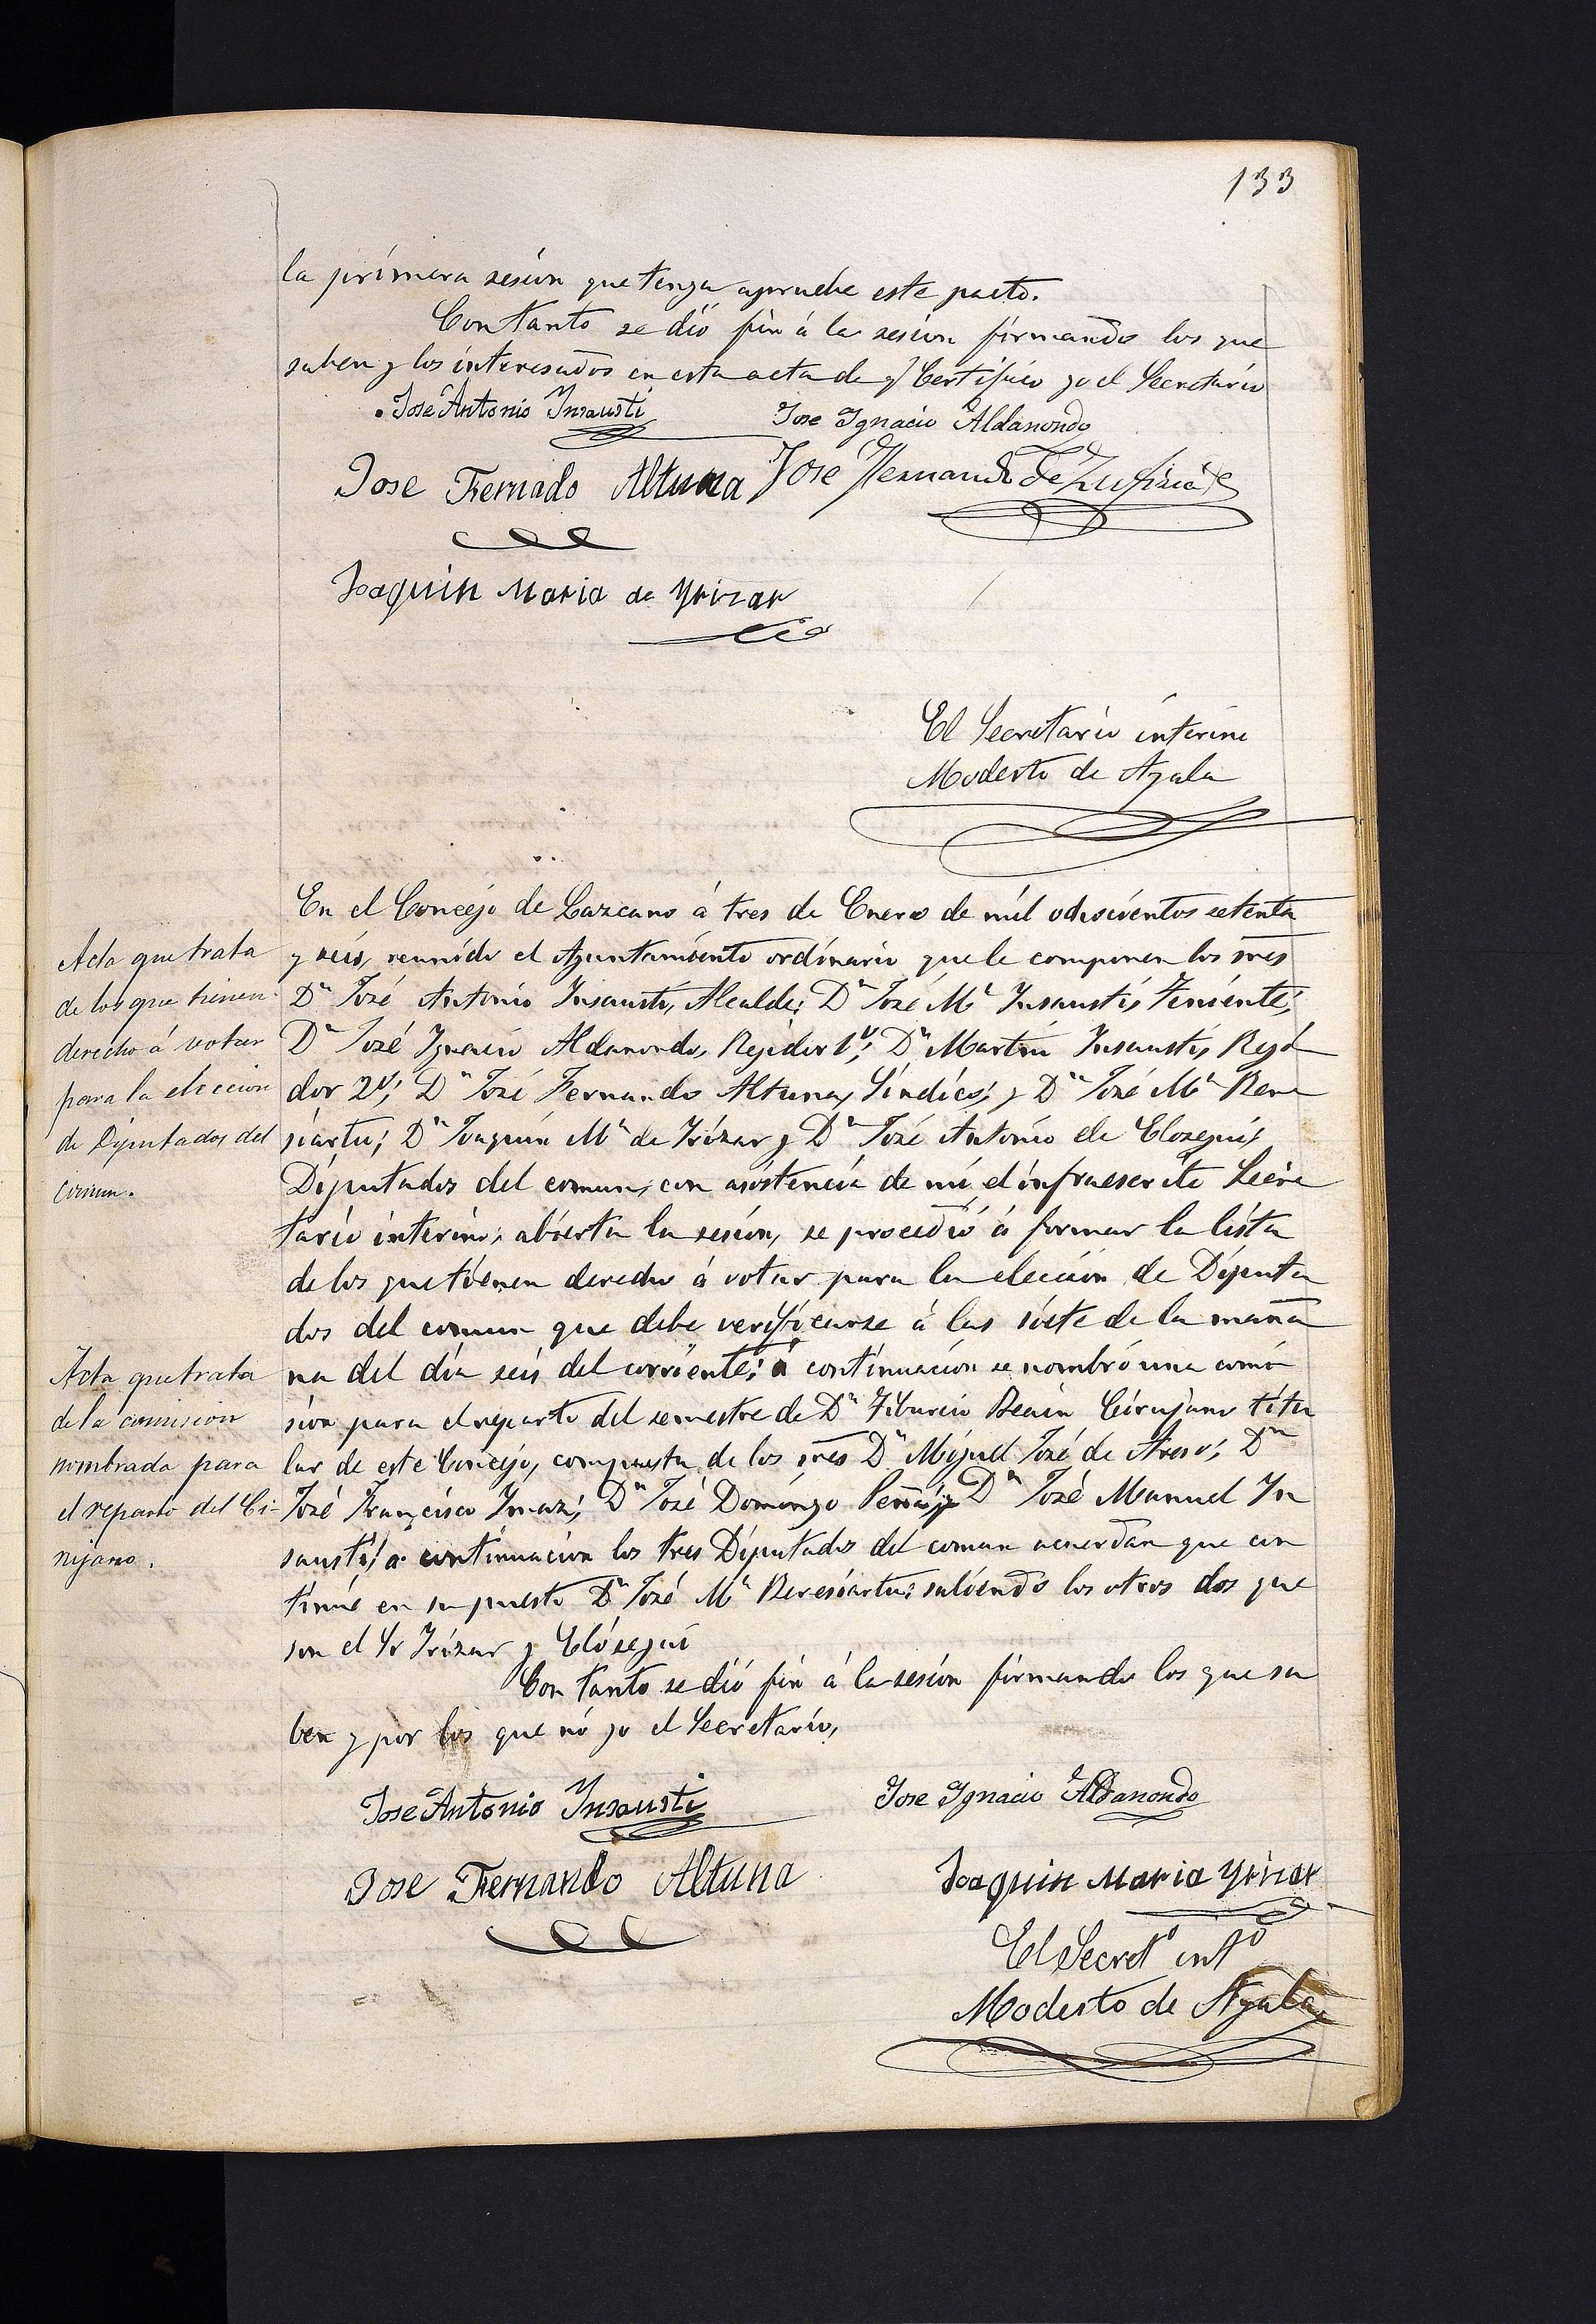 133
la primera sesion que tenga apruebe este pacto.
Con tanto se dió fin á la sesion firmando los que
saben y los interesados en esta acta de q.e Certifico yo el Secretario
Jose Antonio Insausti Jose Ignacio Aldanondo
Jose Fernado Altuna Jose Hernando de
Joaquin Maria de Yrizar
El Secretario interino
Modesto de Ayala
En el Concejo de Lazcano á tres de Enero de mil ochocientos setenta
y seis, reunido el Ayuntamiento ordinario que le componen los sres
Dn José Antonio Insausti, Alcalde; Dn José Ma Insausti, Teniente;
Dn José Ignacio Aldanondo, Regidor 1o; Dn Martin Insausti, Regi
dor 2o; Dn José Fernando Altuna, Síndico; y Dn José Ma Bere
siartu; Dn Joaquin Ma de Irízar y Dn José Antonio de Elozegui,
Diputados del comun, con asistencia de mi, el infraescrito Secre
tario interino; abierta la sesion, se procedió á formar la lista
de los que tienen derecho á votar para la eleccion de Diputa
dos del comun que debe verificarse á las siete de la maña
na del día seis del corriente; á continuacion se nombró una comi
sion para el reparto del semestre de Dn Tiburcio Beain Cirujano titu
lar de este Concejo, compuesta de los sres Dn Miguel José de Areso; Dn
José Francisco Imaz; Dn José Domingo Peña; y Dn José Manuel In
sausti; a continuacion los tres Diputados del comun acuerdan que con
tinúe en su puesto Dn José Ma Beresiartu; saliendo los otros dos que
son el Sr Irízar y Elósegui
Con tanto se dió fin á la sesion firmando los que sa
ben y por los que nó yo el Secretario,
Jose Antonio Insausti Jose Ignacio Aldanondo
Jose Fernando Altuna Joaquin Maria Yrizar
El Secreto into
Modesto de Ayala
Acta que trata
de los que tienen
derecho á votar
para la eleccion
de Diputados del
comun.
Acta que trata
de la comision
nombrada para
el reparto del Ci-
rujano.